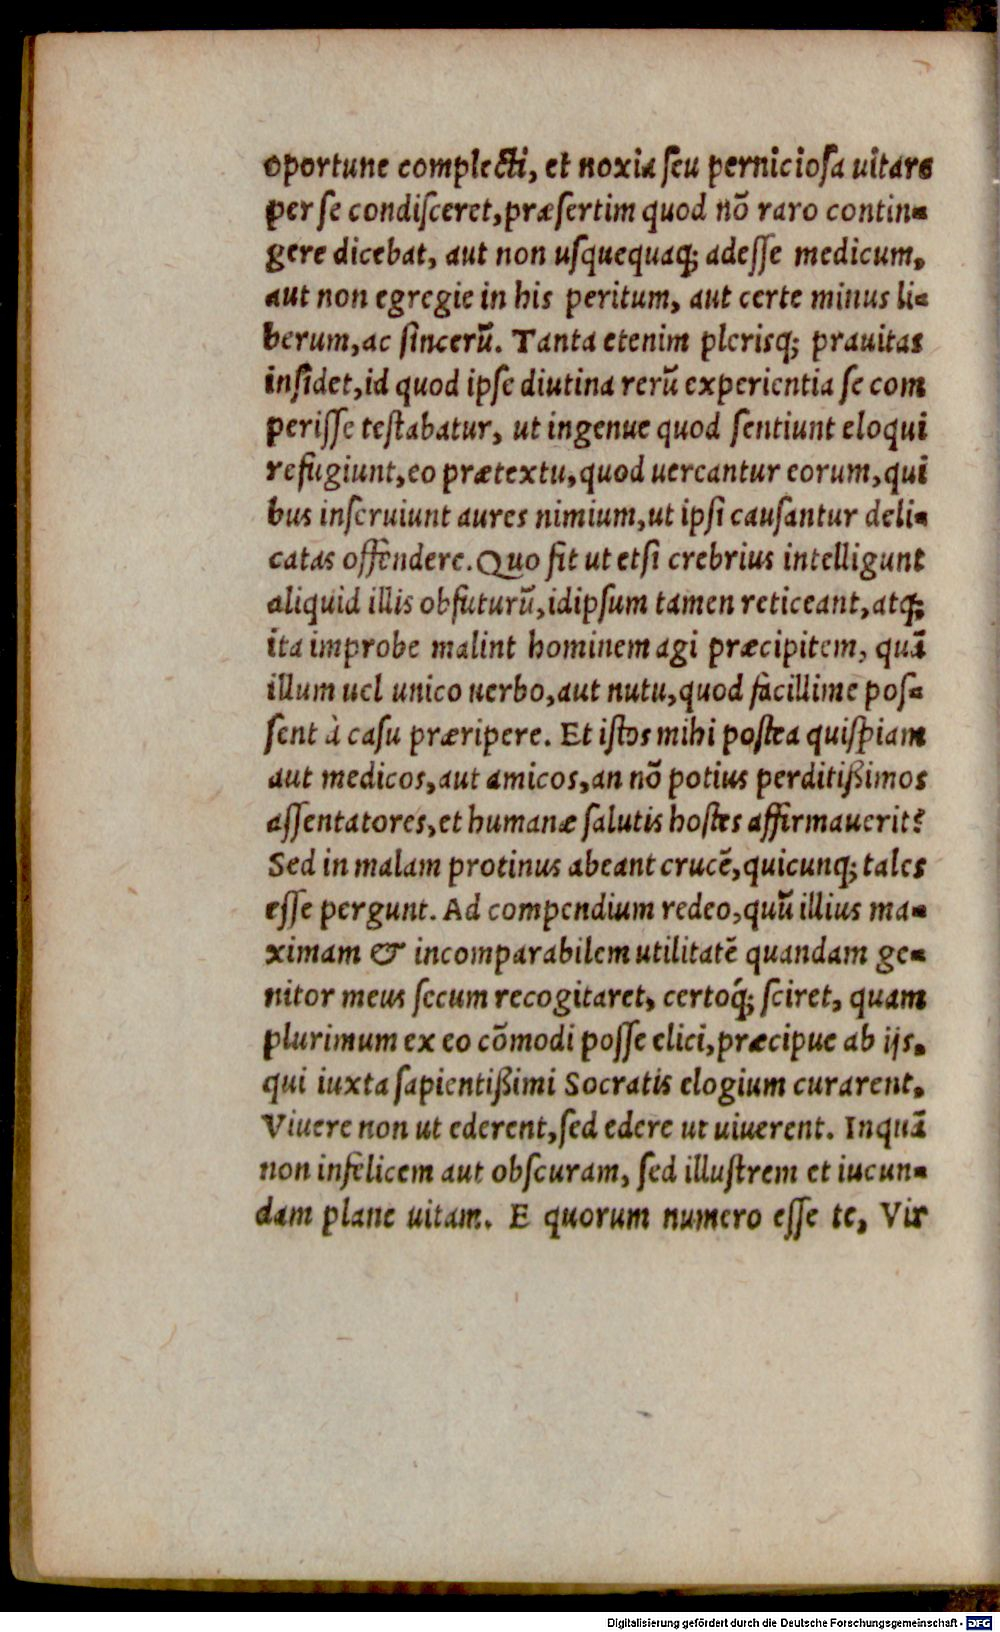 oportune complecti, et noxia ſeu pernicioſa uitare
per ſe condiſceret, præſertim quod nõ raro contin-
gere dicebat, aut non uſquequaq; adeſſe medicum,
aut non egregie in his peritum, aut certe minus li-
berum, ac ſincerũ. Tanta etenim plerisq; prauitas
inſidet, id quod ipſe diutina rerũ experientia ſe com
periſſe teſtabatur, ut ingenue quod ſentiunt eloqui
refugiunt, eo prætextu, quod uereantur eorum, qui
bus inſeruiunt aures nimium, ut ipſi cauſantur deli-
catas offendere. Quo fit ut etſi crebrius intelligunt
aliquid illis obfuturũ, idipſum tamen reticeant, atq;
ita improbe malint hominem agi præcipitem, quã
illum uel unico uerbo, aut nutu, quod facillime poſ-
ſent à caſu præripere. Et iſtos mihi poſtea quiſpiam
aut medicos, aut amicos, an nõ potius perditißimos
aſſentatores, et humanæ ſalutis hoſtes affirmauerit?
Sed in malam protinus abeant crucẽ, quicunq; tales
eſſe pergunt. Ad compendium redeo, quũ illius ma-
ximam & incomparabilem utilitatẽ quandam ge-
nitor meus ſecum recogitaret, certoq́; ſciret, quam
plurimum ex eo cõmodi poſſe elici, præcipue ab ijs,
qui iuxta ſapientißimi Socratis elogium curarent,
Viuere non ut ederent, ſed edere ut uiuerent. Inquã
non infelicem aut obſcuram, ſed illuſtrem et iucun-
dam plane uitam. E quorum numero eſſe te, Vir
Digitalisierung gefördert durch die Deutsche Forschungsgemeinschaft - DFG